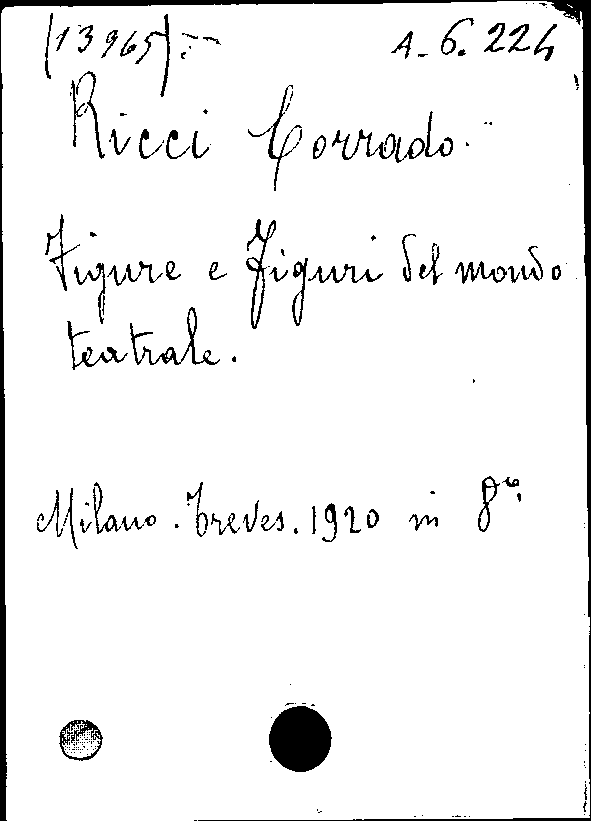 (13965) A. 6. 224
Ricci Corrado.
Figure e Figuri del mondo
teatrale.
Milano. Treves. 1920 in 8º.